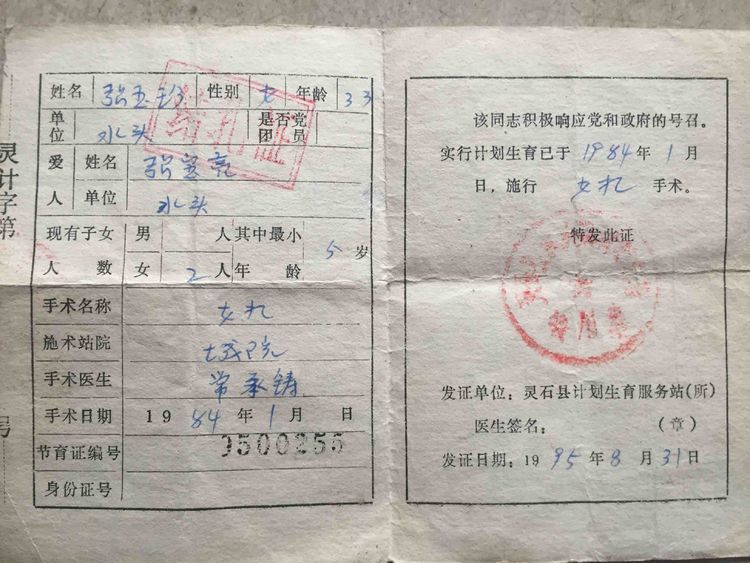 灵计字第
姓名 张玉珍 性别 女 年龄 33
单位 水头 是否党团员
爱人 姓名 张宝亮
单位 水头
现有子女人数 男 人 其中最小年龄 5 岁
女 2 人
手术名称 女扎
施术站院 城医院
手术医生 常承铸
手术日期 1984年1月 日
节育证编号 0500255
身份证号
该同志积极响应党和政府的号召。
实行计划生育已于1984年1月
日，施行 女扎 手术。
特发此证
专用章
发证单位：灵石县计划生育服务站(所)
医生签名： (章)
发证日期：1995年8月31日